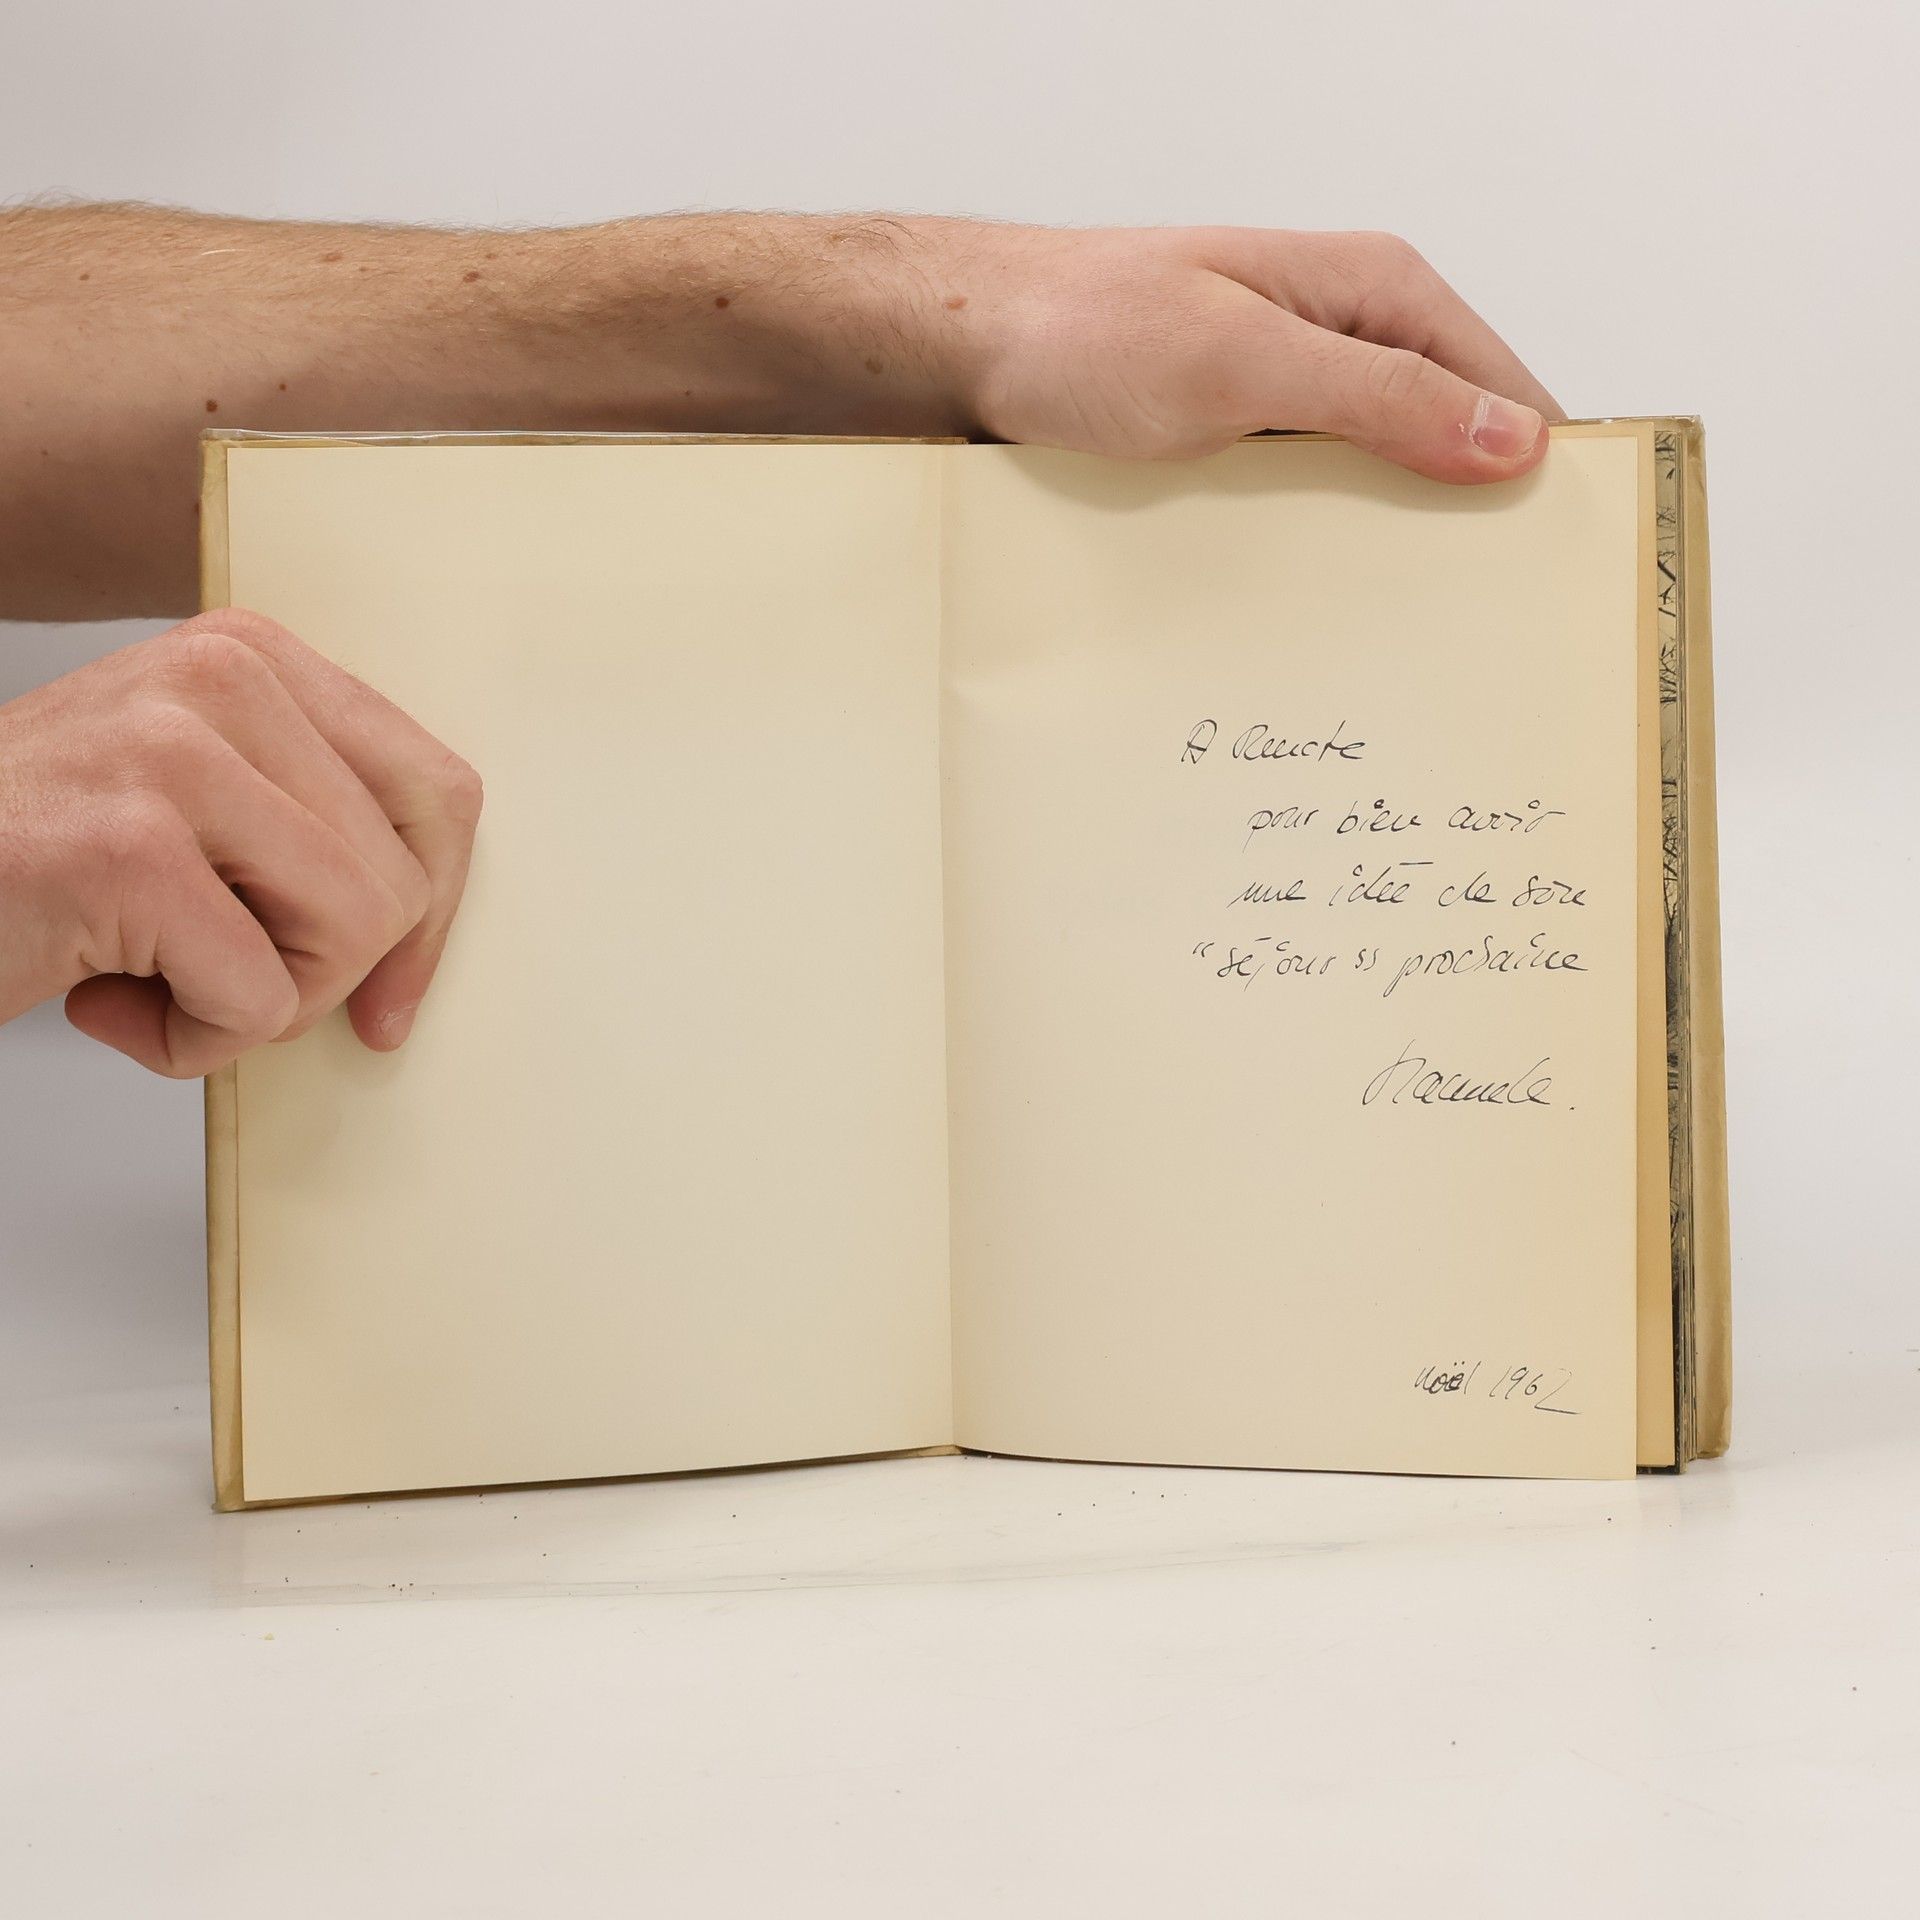 A Renate
pour bien avoir
une idée de son
"séjour" prochaine
Noël 1962